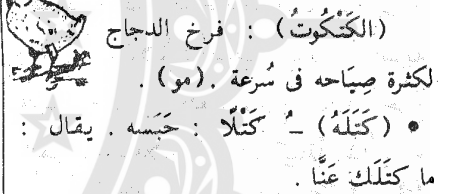 (الكَتْكُوتُ) : فرخ الدجاج
لكثرة صِيَاحه فى سُرعة . (مو) .
• (كَتَلَهُ) ـُ كَتْلًا : حَبَسه . يقال :
ما كتَلَك عَنَّا .